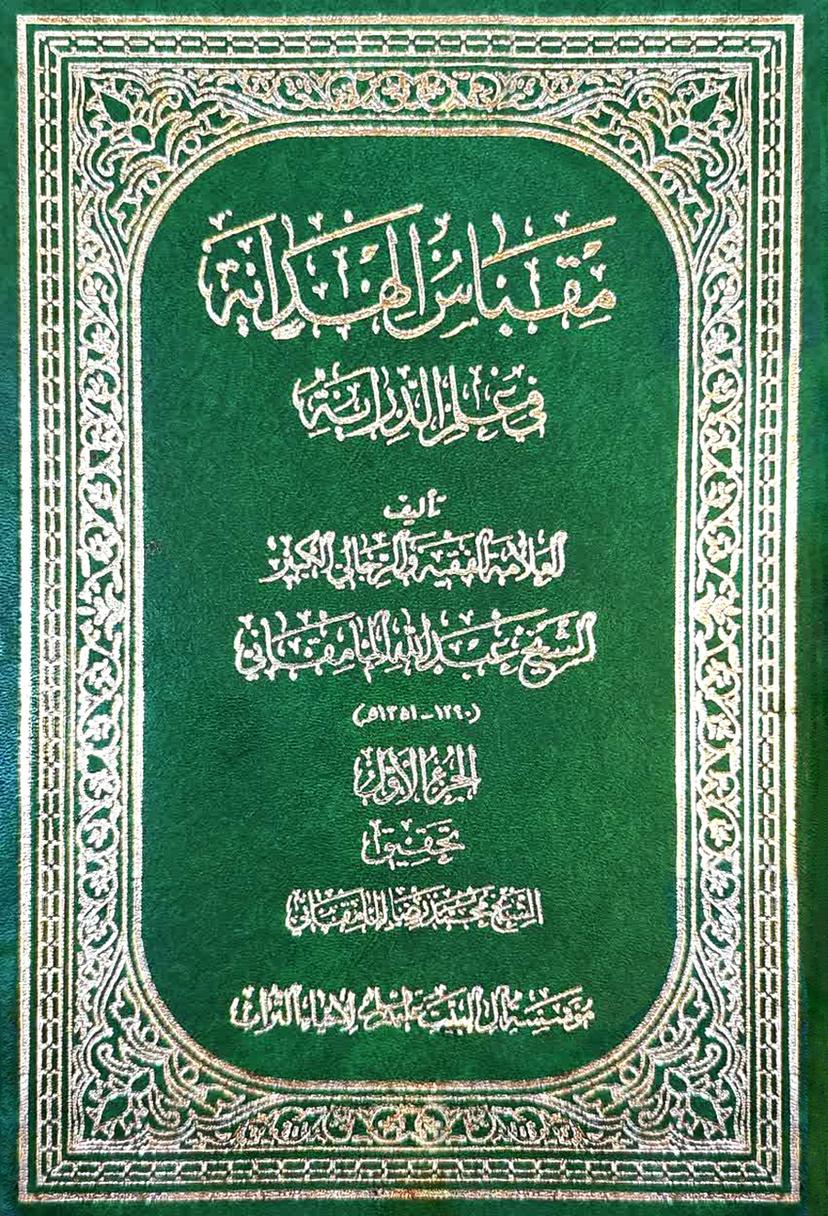 مِقْبَاسُ الهِدَايَة
في عِلمِ الدِّرَايَة
تأليف
العلّامة الفقيه والرّجالي الكبير
الشّيخ عبد الله المامقاني
(١٢٩٠-١٣٥١هـ)
الجزء الأوّل
تحقيق
الشّيخ محمّد رضا المامقاني
مؤسّسة آل البيت عليهم السلام لإحياء التّراث